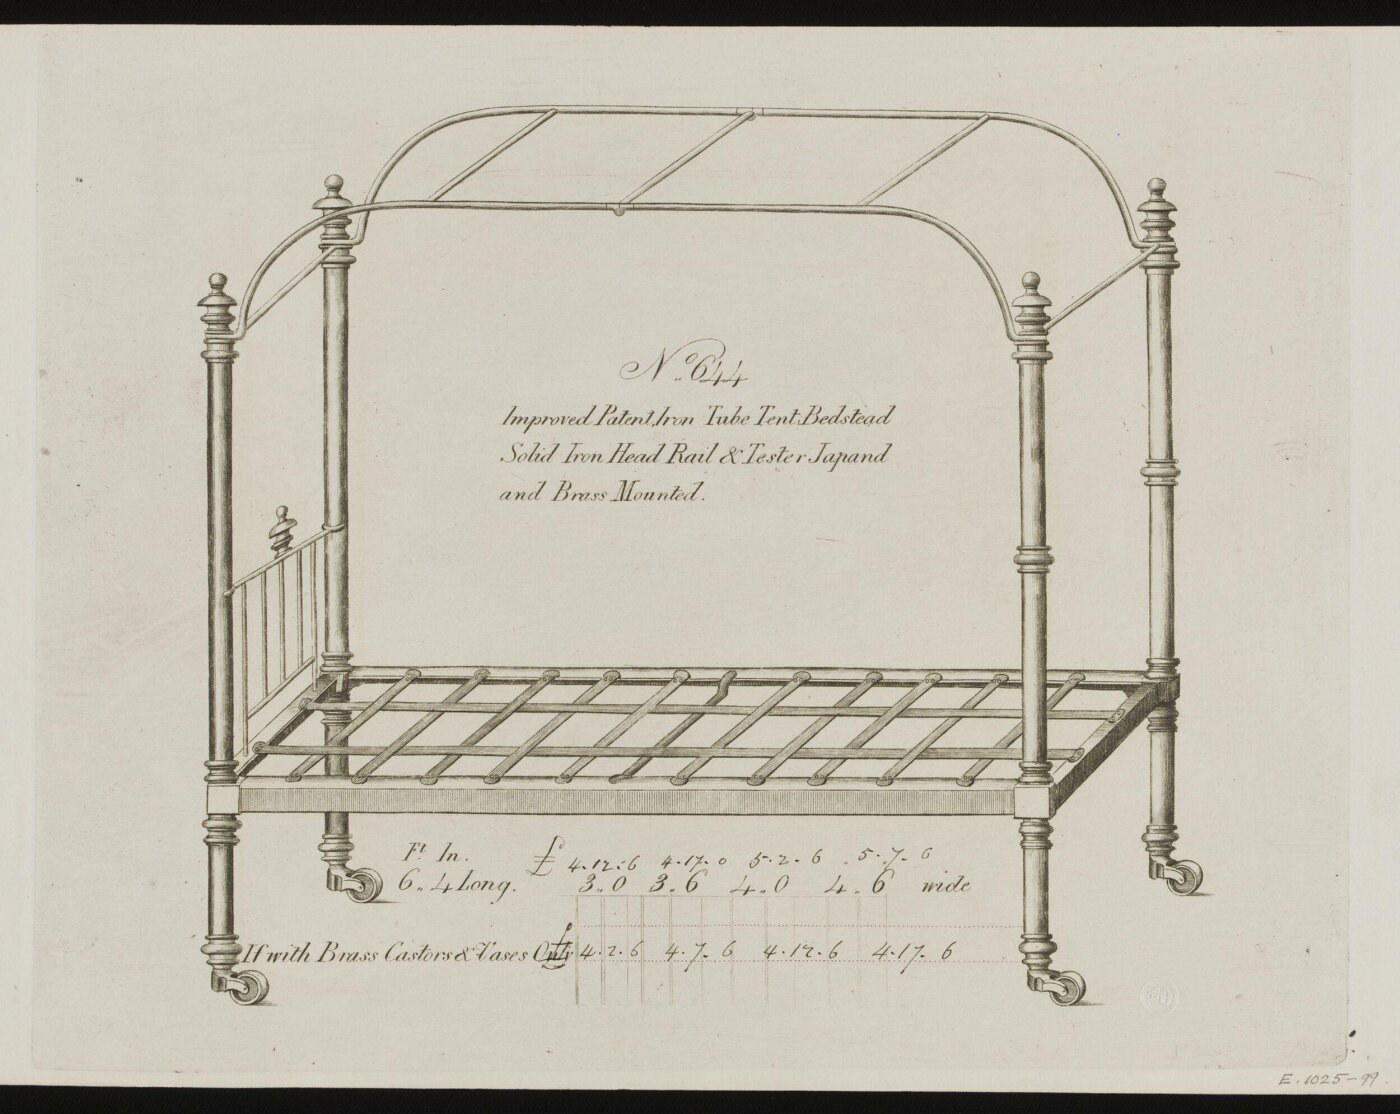 No. 644
Improved Patent Iron Tube Tent Bedstead
Solid Iron Head Rail & Tester Japand
and Brass Mounted.
Ft In. £ 4.12.6 4.17.0 5.2.6 5.7.6
6..4 Long. 3..0 3.6 4..0 4..6 wide
If with Brass Castors & Vases Only £ 4.2.6 4.7.6 4.12.6 4.17.6
E.1025-99